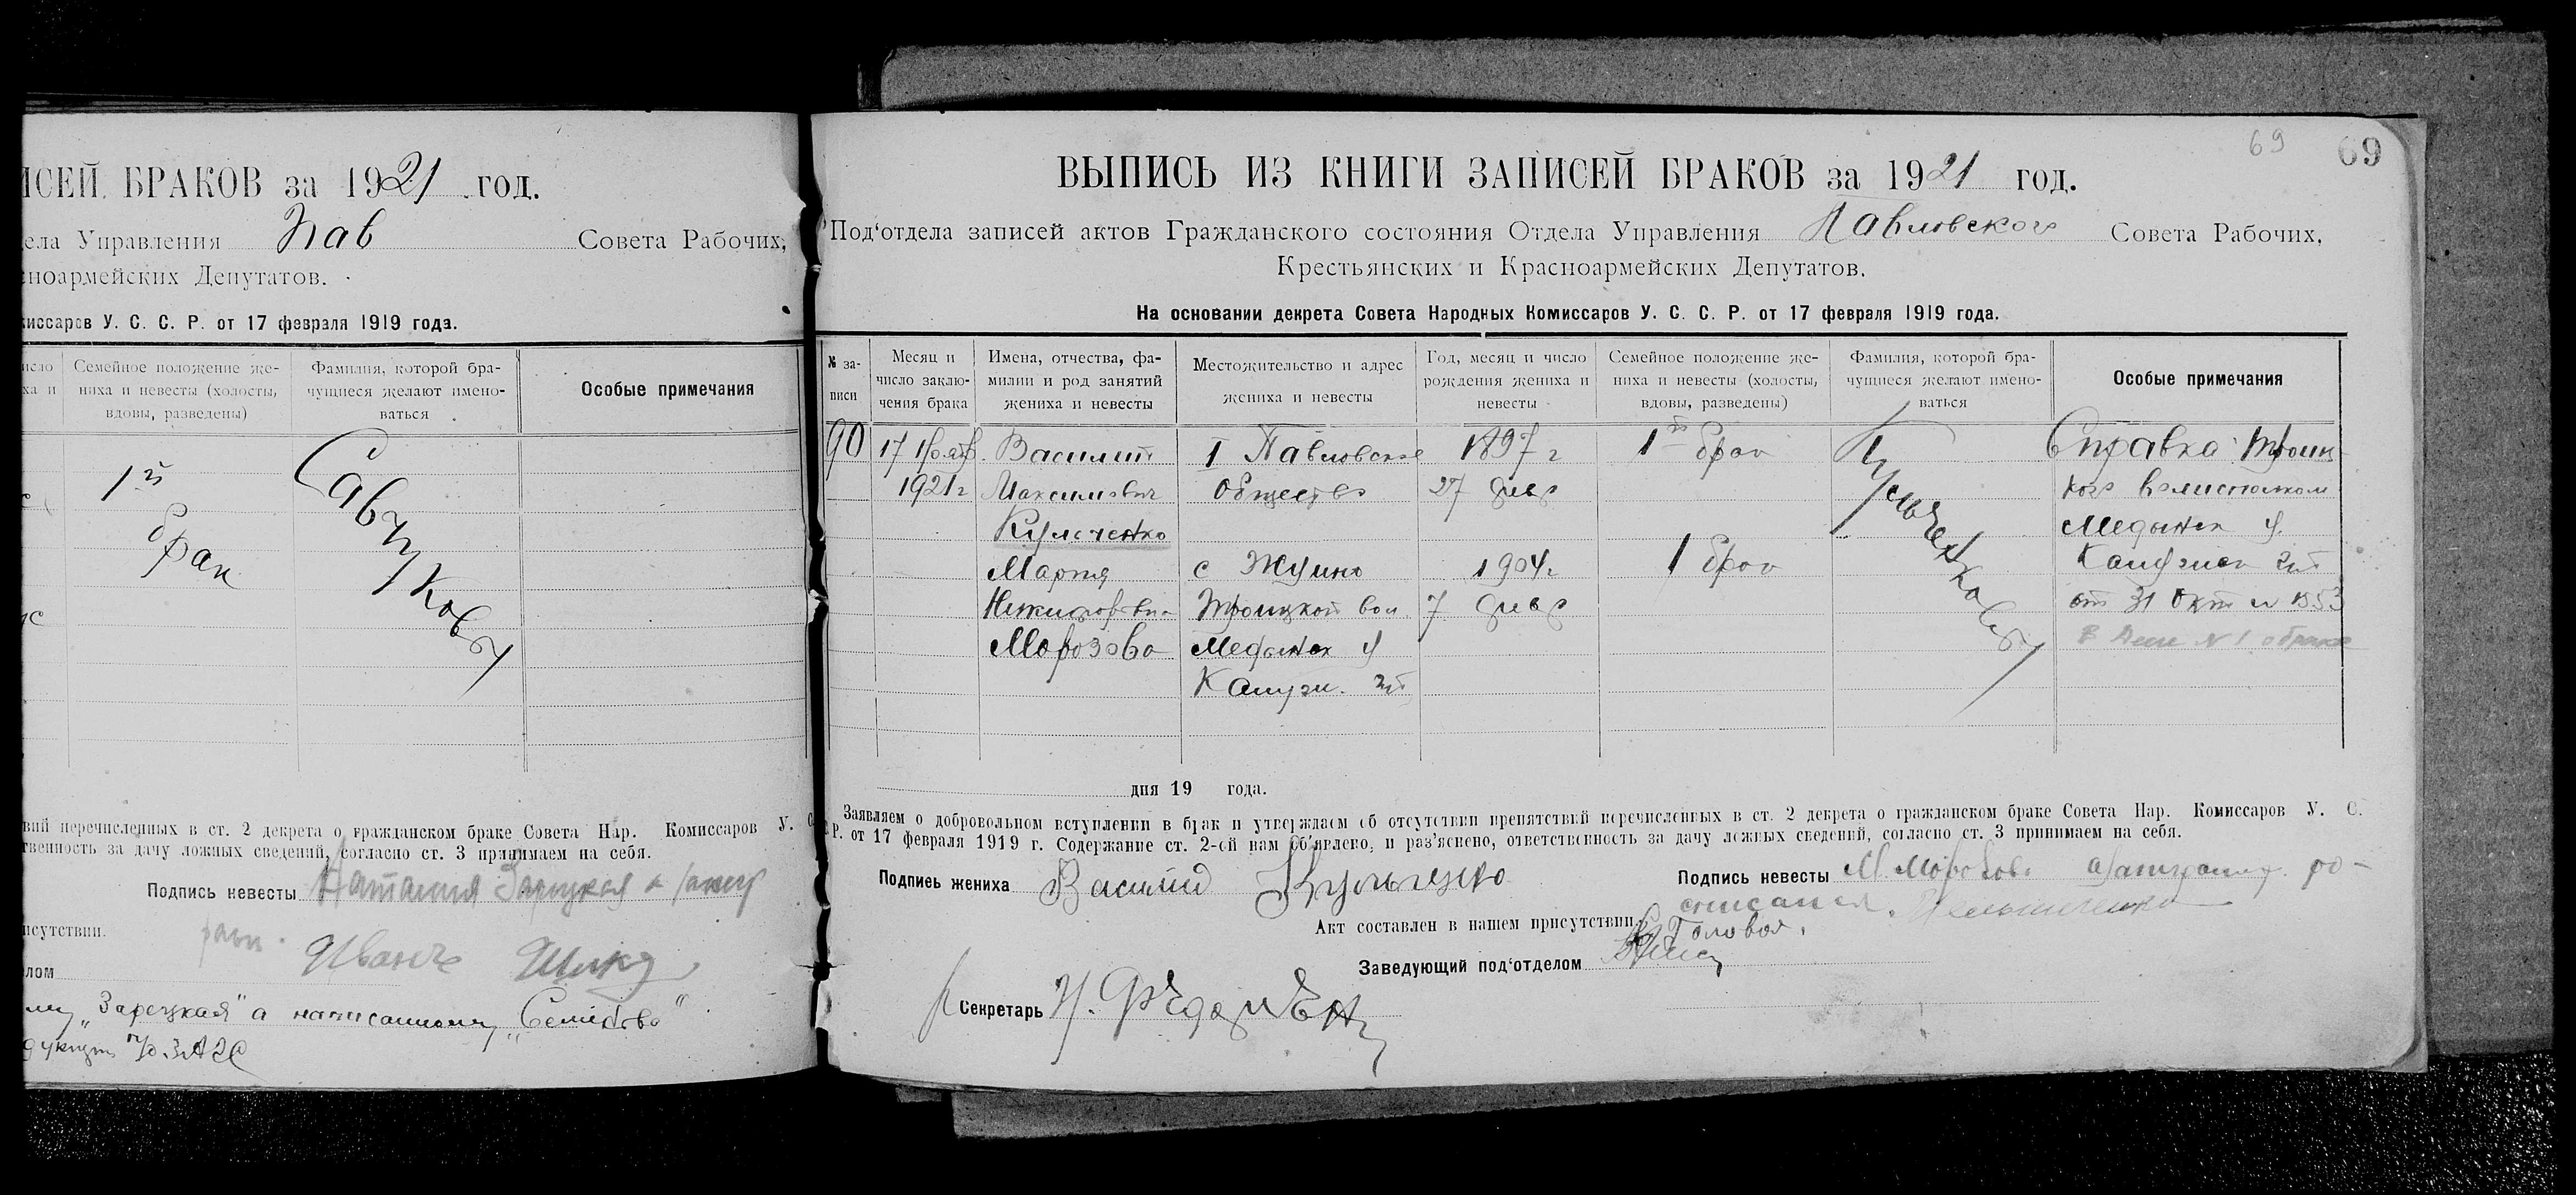 ИСЕЙ БРАКОВ за 1921 год.
ела Управления Пав Совета Рабочих,
сноармейских Депутатов.
миссаров У. С. С. Р. от 17 февраля 1919 года.
исло
ха и
Семейное положение же-
ниха и невесты (холосты,
вдовы, разведены)
Фамилия, которой бра-
чущиеся желают имено-
ваться
Особые примечания
1й
брак
Савчуковы
вий перечисленных в ст. 2 декрета о гражданском браке Совета Нар. Комиссаров У. С.
твенность за дачу ложных сведений, согласно ст. 3 принимаем на себя.
Подпись невесты Наталия Зарецкая
исутствии.
лом
му „Зарецкая" а написанному „Семейство"
69 69
ВЫПИСЬ ИЗ КНИГИ ЗАПИСЕЙ БРАКОВ за 1921 год.
Под‘отдела записей актов Гражданского состояния Отдела Управления Павловского Совета Рабочих,
Крестьянских и Красноармейских Депутатов.
На основании декрета Совета Народных Комиссаров У. С. С. Р. от 17 февраля 1919 года.
№ за-
писи
Месяц и
число заклю-
чения брака
Имена, отчества, фа-
милии и род занятий
жениха и невесты
Местожительство и адрес
жениха и невесты
Год, месяц и число
рождения жениха и
невесты
Семейное положение же-
ниха и невесты (холосты,
вдовы, разведены)
Фамилия, которой бра-
чущиеся желают имено-
ваться
Особые примечания
90 17 Ноября Василий I Павловское 1897 г 1й брак Справка Троиц
1921 г Максимович Общество 27 дек кого Волисполком
Кульченко Медынск у.
Мария с Жуино 1904 г 1 брак Калужск губ
Никифоровна Троицкой вол 7 дек от 31 Окт № 1553
Морозова Медынск у В деле № 1 о браке
Калузж. губ
Кульченковы
дня 19 года.
Заявляем о добровольном вступлении в брак и утверждаем об отсутствии препятствий перечисленных в ст. 2 декрета о гражданском браке Совета Нар. Комиссаров У. С.
Р. от 17 февраля 1919 г. Содержание ст. 2-ой нам об‘явлено, и раз‘яснено, ответственность за дачу ложных сведений, согласно ст. 3 принимаем на себя.
Подпись жениха Василий Кульченко Подпись невесты М. Морозова
Акт составлен в нашем присутствии.
Заведующий под‘отделом
Секретарь